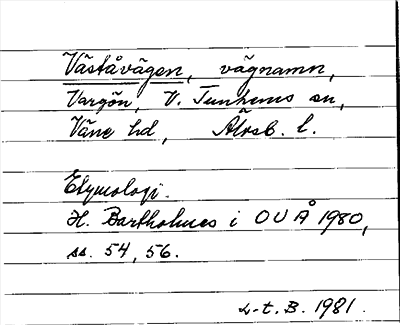 Väståvägen, vägnamn,
Vargön, V. Tunhems sn,
Väne hd, Älvsb. l.
Etymologi.
H. Bartholmes i OUÅ 1980,
ss. 54, 56.
L-t. B. 1981.